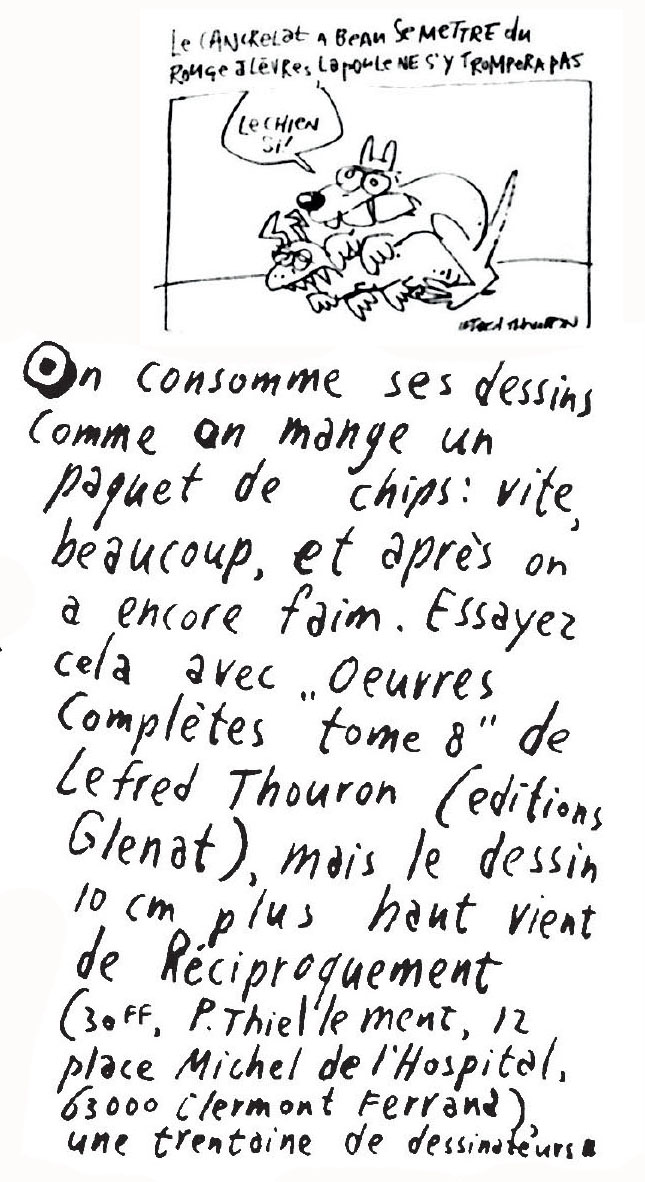 Le CANCRELAT A BEAU SE METTRE du
ROUGE À LÈVRES LA POULE NE S'Y TROMPERA PAS
Le CHIEN
Si!
Lefred Thouron
On consomme ses dessins
comme on mange un
paquet de chips: vite,
beaucoup, et après on
a encore faim. Essayez
cela avec „Oeuvres
Complètes tome 8" de
Lefred Thouron (editions
Glenat), mais le dessin
10 cm plus haut vient
de Réciproquement
(30FF, P. Thiellement, 12
place Michel de l'Hospital,
63000 Clermont Ferrand),
une trentaine de dessinateurs